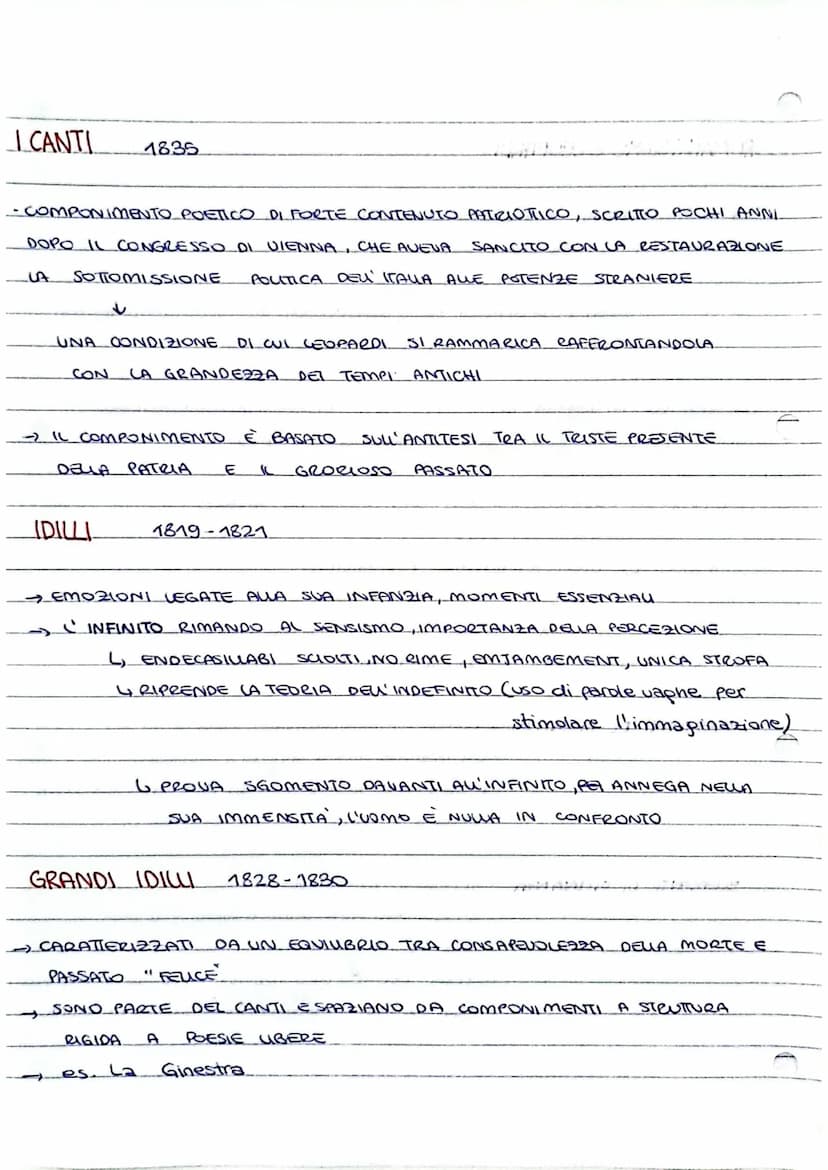 I CANTI 1835
- COMPONIMENTO POETICO DI FORTE CONTENUTO PATRIOTICO, SCRITTO POCHI ANNI
DOPO IL CONGRESSO DI VIENNA, CHE AVEVA SANCITO CON LA RESTAURAZIONE
LA SOTTOMISSIONE POLITICA DELL'ITALIA ALLE POTENZE STRANIERE
↓
UNA CONDIZIONE DI CUI LEOPARDI SI RAMMARICA RAFFRONTANDOLA
CON LA GRANDEZZA DEI TEMPI ANTICHI
→ IL COMPONIMENTO È BASATO SULL'ANTITESI TRA IL TRISTE PRESENTE
DELLA PATRIA E IL GRORIOSO PASSATO
IDILLI 1819-1821
→ EMOZIONI LEGATE ALLA SUA INFANZIA, MOMENTI ESSENZIALI
→ L'INFINITO RIMANDO AL SENSISMO, IMPORTANZA DELLA PERCEZIONE
↳ ENDECASILLABI SCIOLTI, NO RIME, EMJAMBEMENT, UNICA STROFA
↳ RIPRENDE LA TEORIA DELL'INDEFINITO (uso di parole vaghe per
stimolare l'immaginazione)
↳ PROVA SGOMENTO DAVANTI ALL'INFINITO, POI ANNEGA NELLA
SUA IMMENSITÀ, L'UOMO È NULLA IN CONFRONTO
GRANDI IDILLI 1828-1830
→ CARATTERIZZATI DA UN EQUILIBRIO TRA CONSAPEVOLEZZA DELLA MORTE E
PASSATO "FELICE"
→ SONO PARTE DEL CANTI E SPAZIANO DA COMPONIMENTI A STRUTTURA
RIGIDA A POESIE LIBERE
→ es. La Ginestra